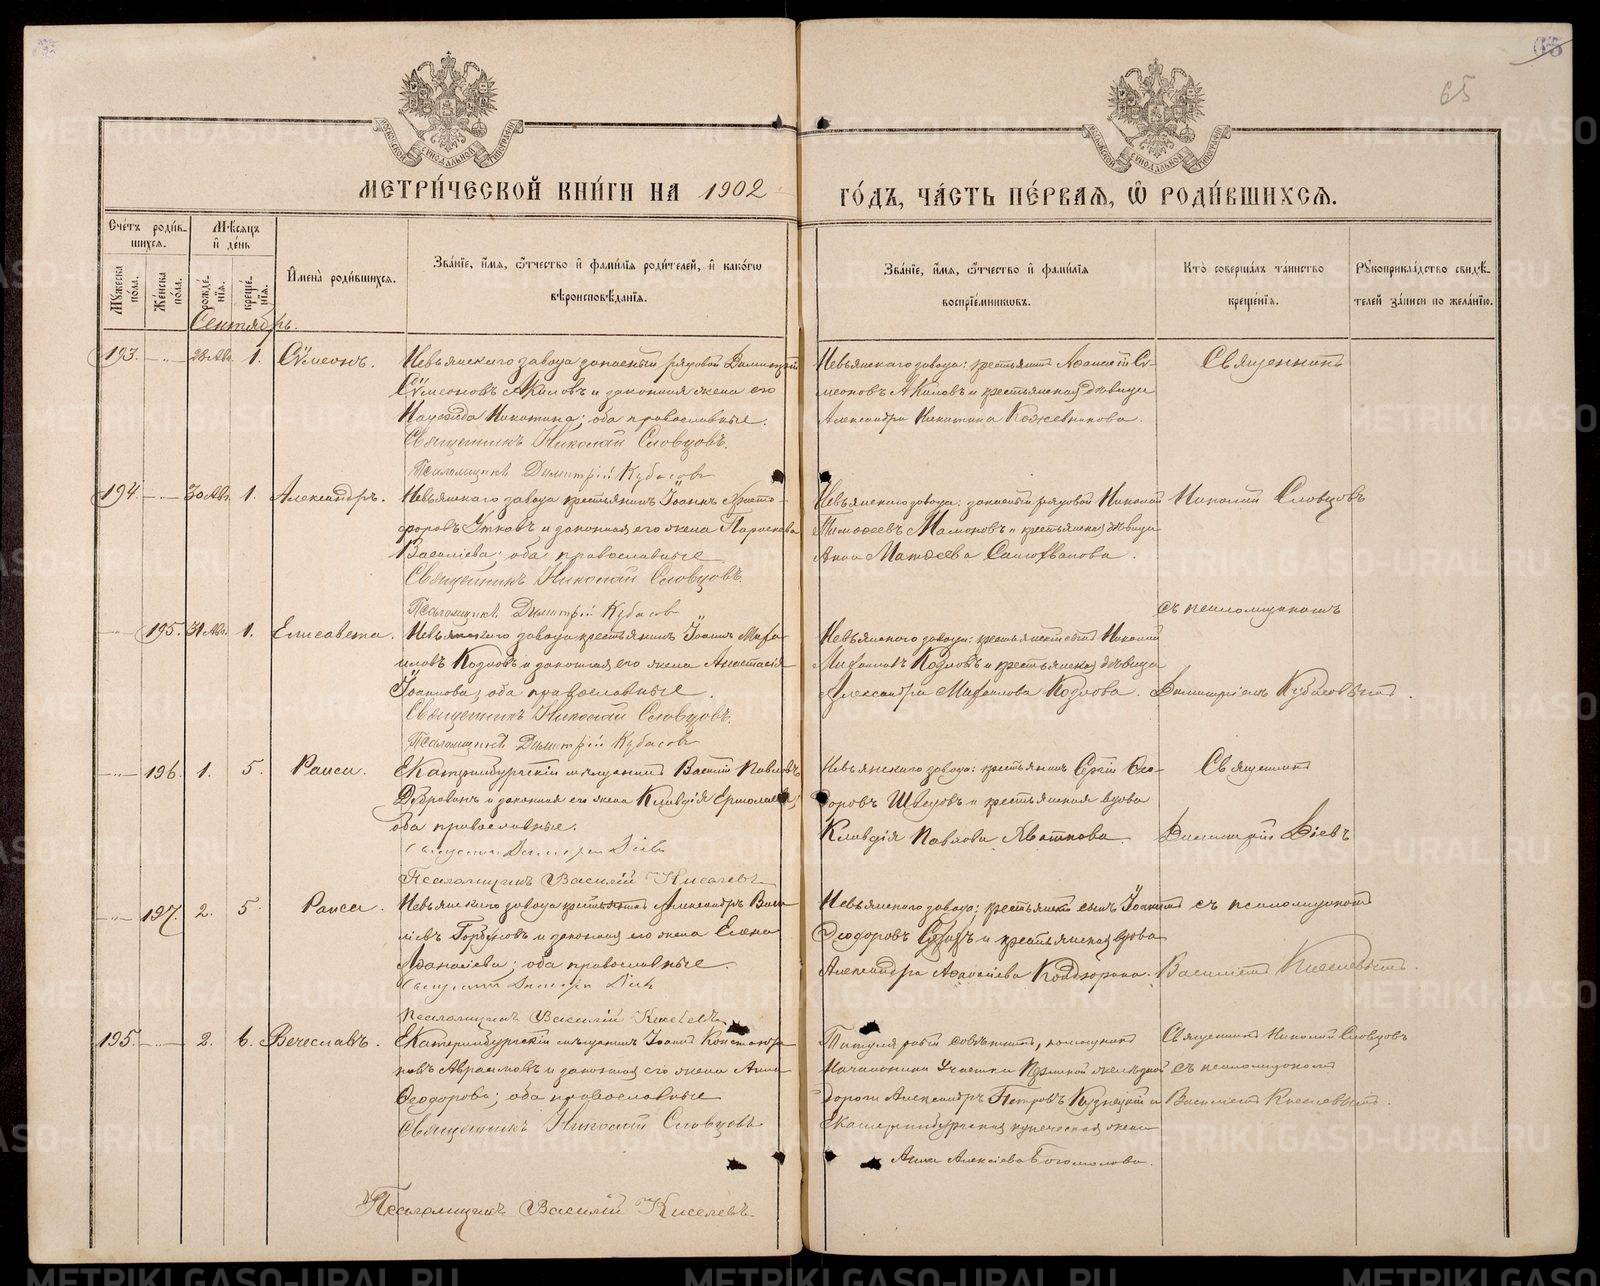 65
МЕТРИ́ЧЕСКОЙ КНИ́ГИ НА 1902
ГО́ДЪ, ЧА́СТЬ ПЕ́РВАЯ, Ѿ РОДИ́ВШИХСЯ.
Сче́тъ роди́вшихся.
Му́жеска по́ла.
Же́нска по́ла.
Мѣ́сяцъ и де́нь
рожде́нїя.
креще́нїя.
Имена̀ роди́вшихся.
Зва́нїе, и́мя, ѻ҆́тчество и фами́лїя роди́телей, и како́гѡ
вѣроисповѣ́данїя.
Зва́нїе, и́мя, ѻ҆́тчество и фами́лїя
воспрїе́мниковъ.
Кто̀ соверша́лъ та́инство
креще́нїя.
Рꙋкоприкла́дство свидѣ́-
телей за́писи по жела́нїю.
Сентябрь.
193. 28 Авг. 1. Сѵмеонъ.
Невьянскаго завода запасный рядовой Димитрій
Сѵмеоновъ Акиловъ и законная жена его
Надежда Никитина; оба православные.
Священникъ Николай Словцовъ.
Псаломщикъ Димитрій Кубасовъ
Невьянскаго завода: крестьянинъ Аѳанасій Сѵ-
меоновъ Акиловъ и крестьянская дѣвица
Александра Никитина Кожевникова.
Священникъ
194. 30 Авг. 1. Александръ.
Невьянскаго завода крестьянинъ Іоаннъ Христо-
форовъ Утковъ и законная его жена Параскева
Василіева; оба православные
Священникъ Николай Словцовъ.
Псаломщикъ Димитрій Кубасовъ
Невьянскаго завода: запасный рядовой Николай
Тимоѳеевъ Мамоновъ и крестьянская дѣвица
Анна Матѳеева Самойланова.
Николай Словцовъ
съ псаломщикомъ
195. 31 Авг. 1. Елисавета.
Невьянскаго завода крестьянинъ Іоаннъ Миха-
иловъ Козловъ и законная его жена Анастасія
Іоаннова; оба православные.
Священникъ Николай Словцовъ.
Псаломщикъ Димитрій Кубасовъ
Невьянскаго завода: крестьянскій сынъ Николай
Михаиловъ Козловъ и крестьянская дѣвица
Александра Михаилова Козлова.
Димитріемъ Кубасовымъ.
196. 1. 5. Раиса.
Екатеринбургскій мѣщанинъ Василій Павловъ
и законная его жена Клавдія Ермолаева;
оба православные.
Священникъ Димитрій Діевъ
Псаломщикъ Василій Киселевъ
Невьянскаго завода: крестьянинъ Сергій Ѳео-
доровъ Швецовъ и крестьянская вдова
Клавдія Павлова
Священникъ
Димитрій Діевъ
197. 2. 5. Раиса.
Невьянскаго завода крестьянинъ Александръ Васи-
ліевъ Горбуновъ и законная его жена Елена
Аѳанасіева; оба православные.
Священникъ Димитрій Діевъ
Псаломщикъ Василій Киселевъ
Невьянскаго завода: крестьянскій сынъ Іоаннъ
Ѳеодоровъ и крестьянская вдова
Александра
съ псаломщикомъ
Василіемъ Киселевымъ.
195. 2. 6. Вячеславъ.
Екатеринбургскій мѣщанинъ Іоаннъ Констант-
новъ Авраамовъ и законная его жена Анна
Ѳеодорова; оба православные
Священникъ Николай Словцовъ
Псаломщикъ Василій Киселевъ
Титулярный совѣтникъ, помощникъ
Начальника Участка желѣзной
дороги Александръ Петровъ Кузнецкій и
Екатеринбургская купеческая жена
Анна Алексіева Богомолова.
Священникъ Николай Словцовъ
съ псаломщикомъ
Василіемъ Киселевымъ.
METRIKI.GASO-URAL.RU